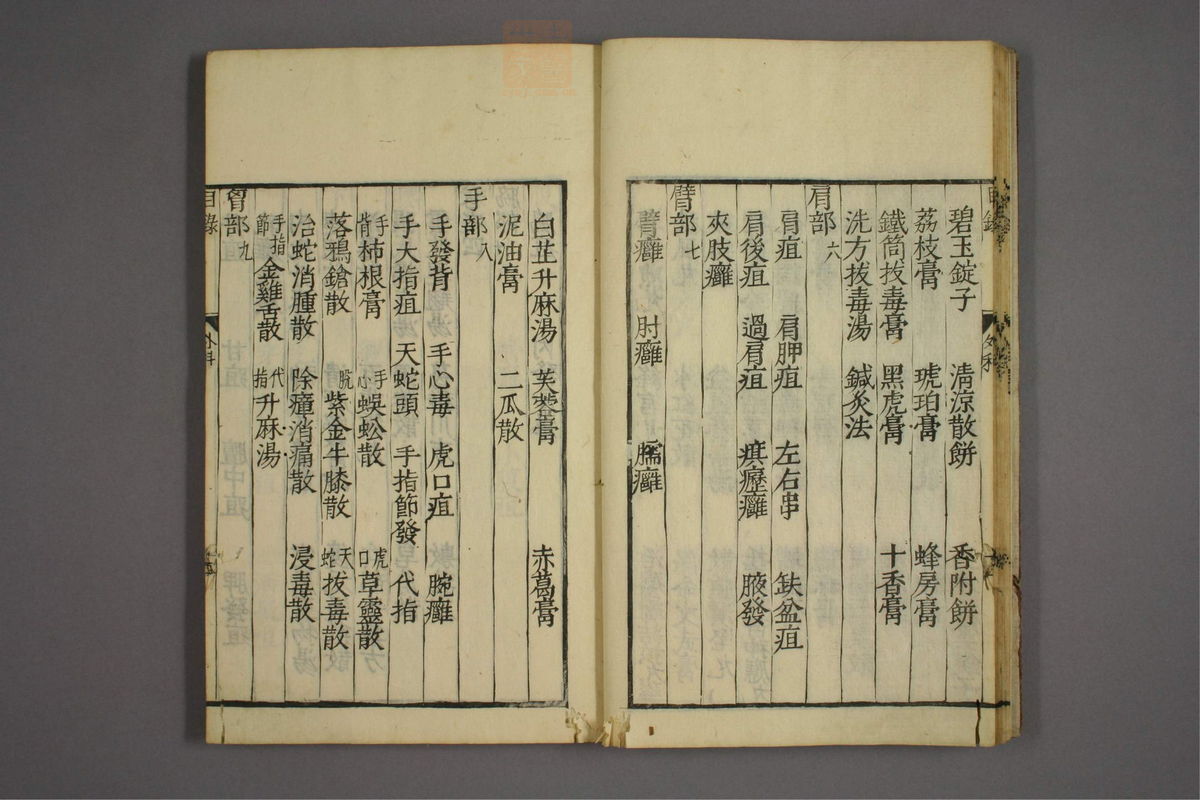 碧玉錠子 清涼散餅 香附餅
荔枝膏 琥珀膏 蜂房膏
鐵筒拔毒膏 黑虎膏 十香膏
洗方拔毒湯 鍼灸法
肩部六
肩疽 肩胛疽 左右串 缺盆疽
肩後疽 過肩疽 㾭癧癰 腋發
夾肢癰
臂部七
臂癰 肘癰 臑癰
目錄 外科
白芷升麻湯 芙蓉膏 赤葛膏
泥油膏 二瓜散
手部八
手發背 手心毒 虎口疽 腕癰
手大指疽 天蛇頭 手指節發 代指
手背柿根膏 手心蜈蚣散 虎口草靈散
落鴉鎗散 脫紫金牛膝散 天蛇拔毒散
治蛇消腫散 除癉消痛散 浸毒散
手指節金雞舌散 代指升麻湯
胷部九
目錄 外科